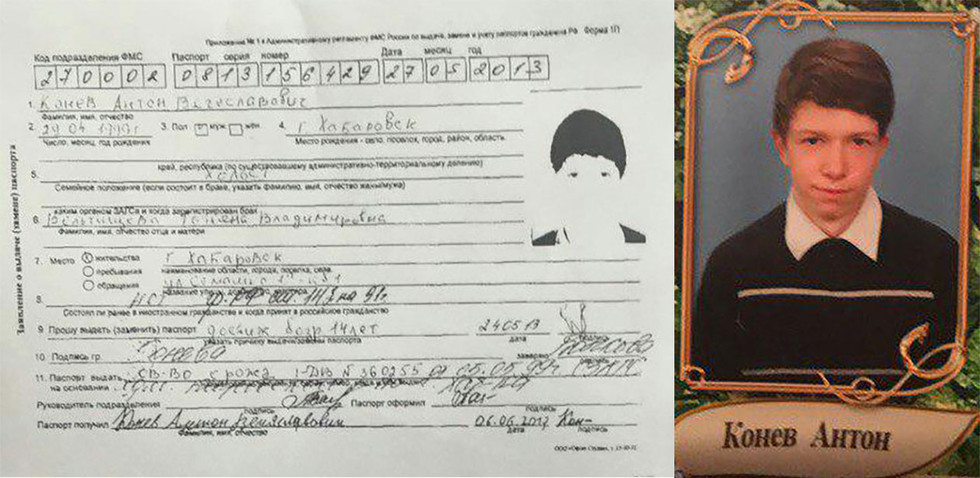 Приложение № 1 к Административному регламенту ФМС России по выдаче, замене и учету паспортов гражданина РФ Форма 1П
Код подразделения ФМС Паспорт серия номер Дата месяц год
270002 0813 156429 27 05 2013
1. Конев Антон Вечеславович
Фамилия, имя, отчество
2. 3. Пол муж. жен. 4. г. Хабаровск
Число, месяц, год рождения Место рождения - село, поселок, город, район, область,
край, республика (по существовавшему административно-территориальному делению)
5. Холост
Семейное положение (если состоит в браке, указать фамилию, имя, отчество жены/мужа)
каким органом ЗАГСа и когда зарегистрирован брак
6. Татьяна Владимировна
Фамилия, имя, отчество отца и матери
7. Место жительства г. Хабаровск
пребывания наименование области, города, поселка, села,
обращения
8. нет
Состоял ли ранее в иностранном гражданстве и когда принят в российское гражданство
9. Прошу выдать (заменить) паспорт достиж возр 14 лет 240513
указать причину выдачи/замены паспорта подпись
10. Подпись гр. заверяю
11. Паспорт выдать на основании св-во о рожд I-ДВ N 360255
Руководитель подразделения Паспорт оформил
подпись подпись
Паспорт получил Конев Антон 06.06.2013 Кон-
фамилия, имя, отчество дата подпись
Заявление о выдаче (замене) паспорта
Конев Антон